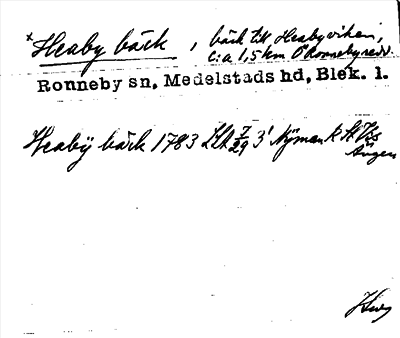 × Heaby bäck, bäck till Heabyviken,
c:a 1,5 km Ö Ronneby redd.
Ronneby sn, Medelstads hd, Blek. l.
Heabÿ bäck 1783 LSA 7/29 3' Nÿman k St.
Ängen